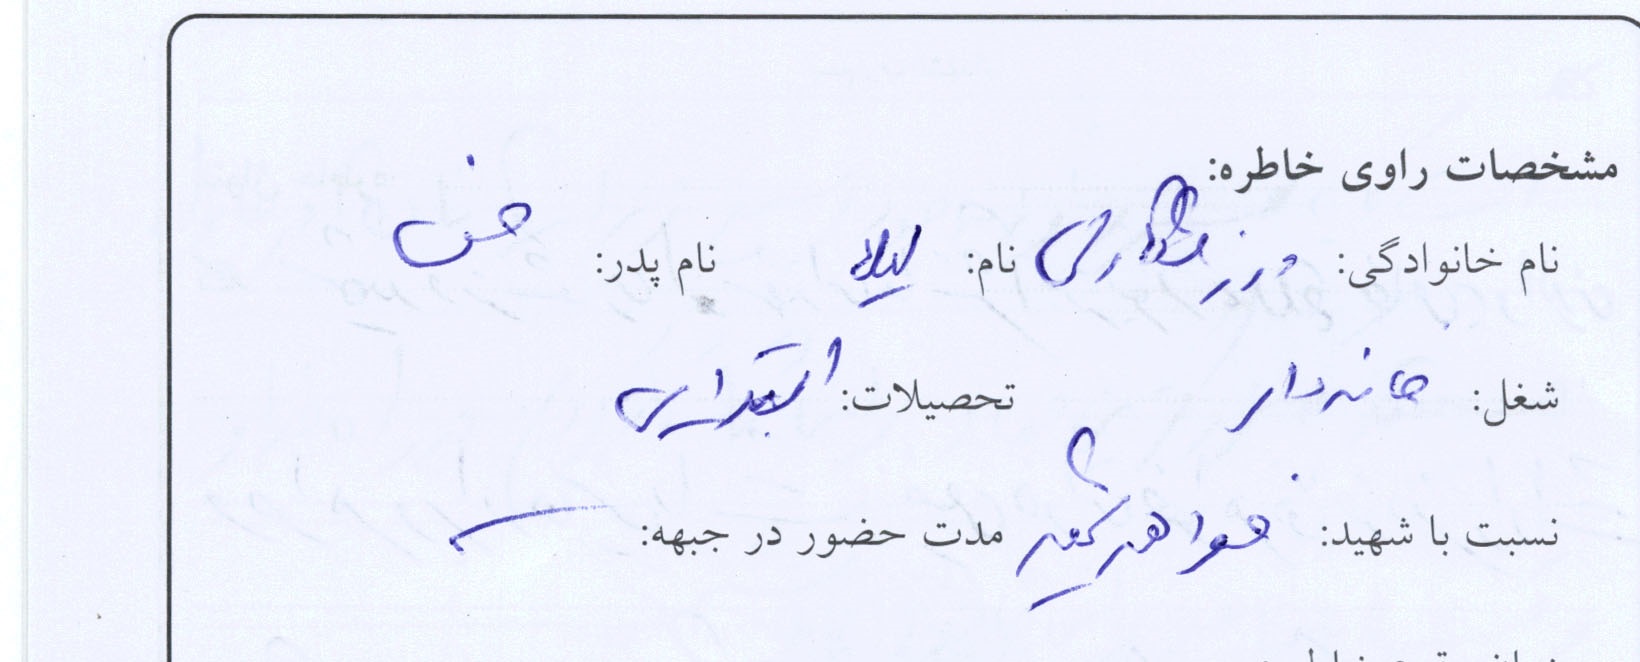 مشخصات راوی خاطره:
نام خانوادگی: نام: لیلا نام پدر: حسن
شغل: خانه دار تحصیلات: ابتدایی
نسبت با شهید: خواهر مدت حضور در جبهه: